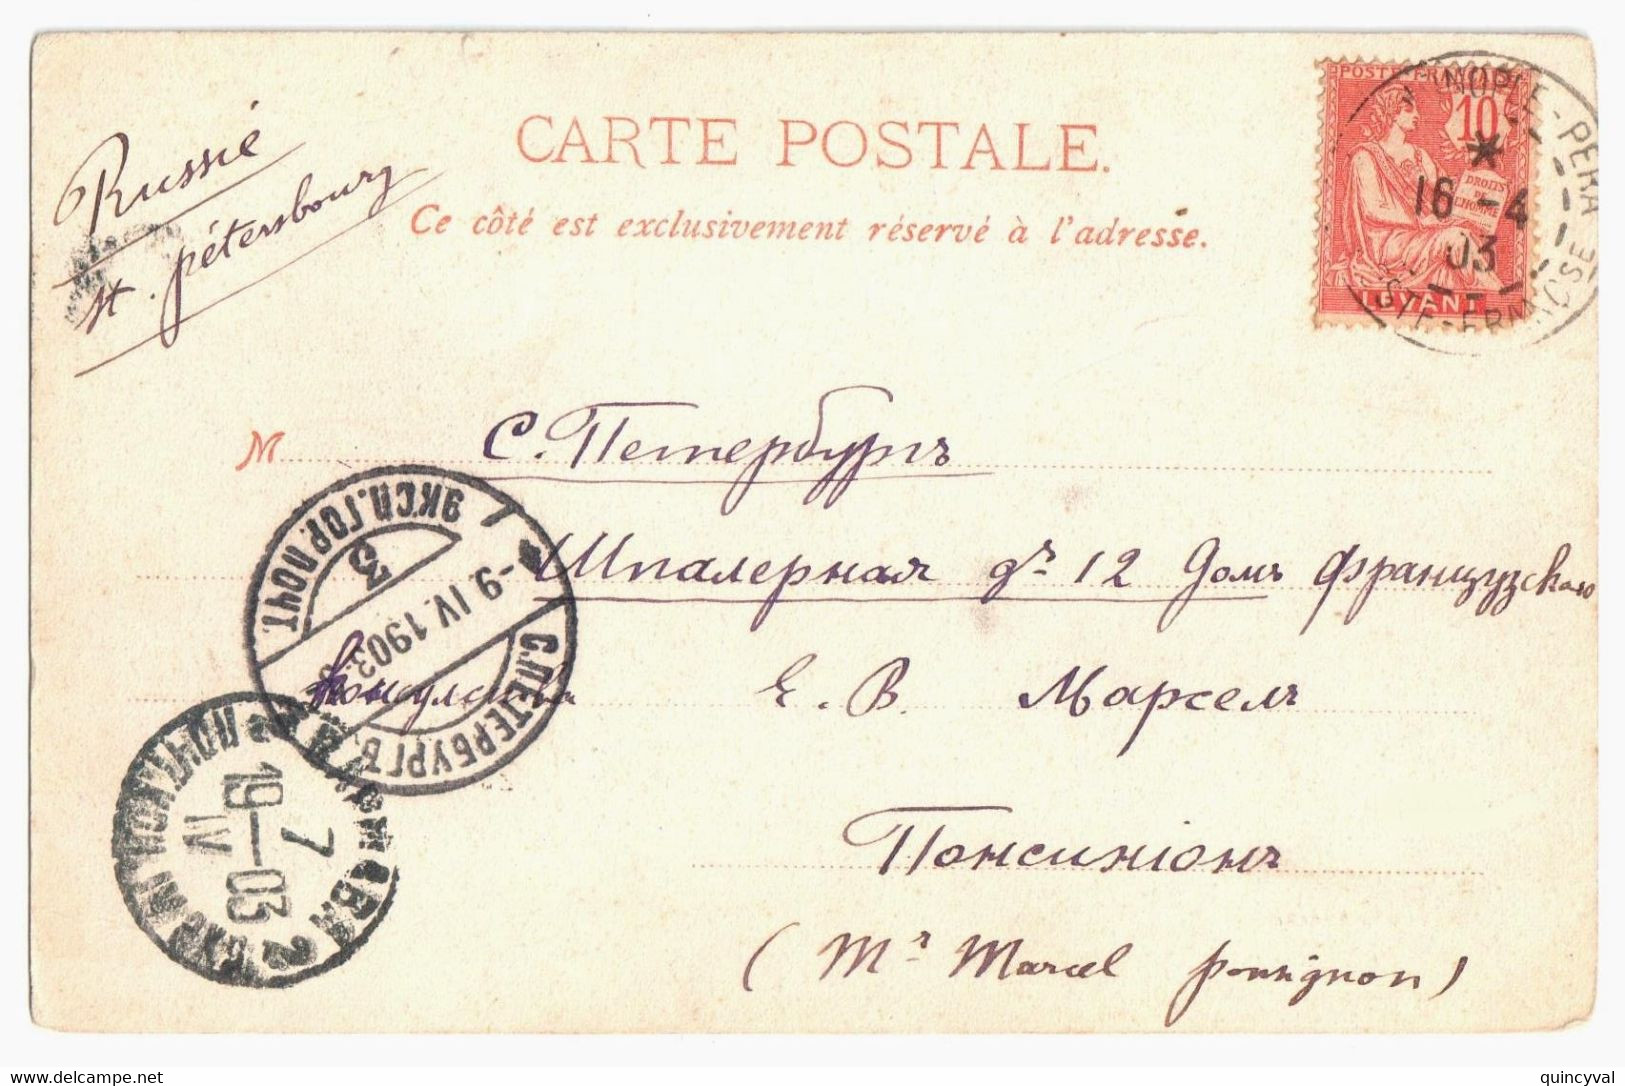 CARTE POSTALE.
Ce côté est exclusivement réservé à l'adresse.
Russie
st. pétersbourg
POSTE FRANÇAISE
10
DROITS
DE
L'HOMME
LEVANT
NOPLE-PERA
16 -4
03
STE-FRANCSE
М
С. Петербургъ
Шпалерная дъ 12 Домъ Французскаго
Консулства Е. В. Марсель
Понсиніонъ
(Mr Marcel ponsignon)
С.ПЕТЕРБУРГЪ.
-9.IV.1903
3
ЭКСП.ГОР.ПОЧТ.
7
19-03
IV
quincyval
www.delcampe.net